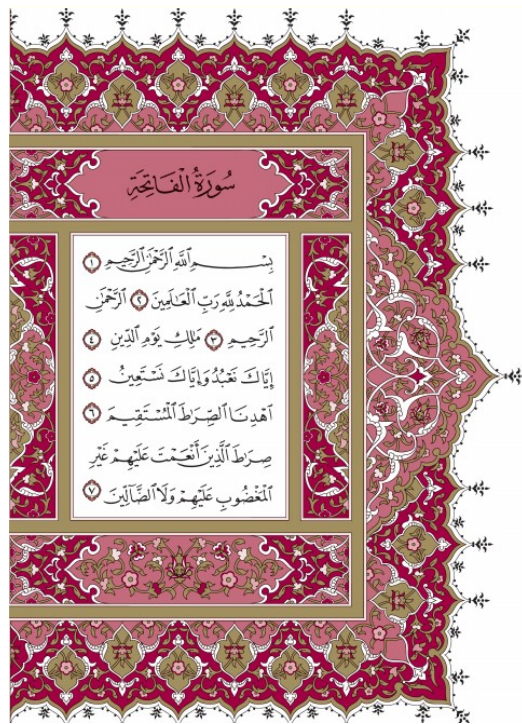 سُورَةُ الْفَاتِحَةِ
بِسْمِ ٱللَّهِ ٱلرَّحْمَٰنِ ٱلرَّحِيمِ ١
ٱلْحَمْدُ لِلَّهِ رَبِّ ٱلْعَٰلَمِينَ ٢ ٱلرَّحْمَٰنِ
ٱلرَّحِيمِ ٣ مَٰلِكِ يَوْمِ ٱلدِّينِ ٤
إِيَّاكَ نَعْبُدُ وَإِيَّاكَ نَسْتَعِينُ ٥
ٱهْدِنَا ٱلصِّرَٰطَ ٱلْمُسْتَقِيمَ ٦
صِرَٰطَ ٱلَّذِينَ أَنْعَمْتَ عَلَيْهِمْ غَيْرِ
ٱلْمَغْضُوبِ عَلَيْهِمْ وَلَا ٱلضَّآلِّينَ ٧